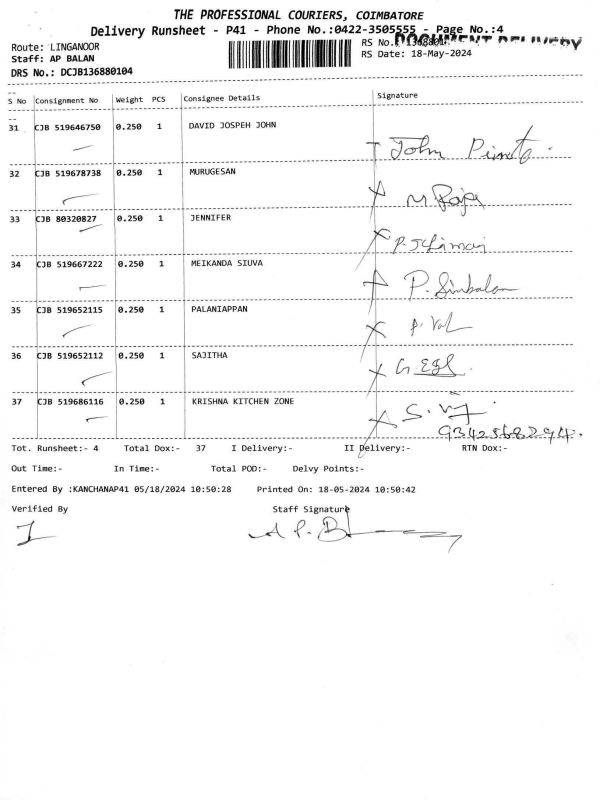 THE PROFESSIONAL COURIERS, COIMBATORE
Delivery Runsheet - P41 - Phone No.:0422-3505555 - Page No.:4
DOCUMENT DELIVERY
Route: LINGANOOR
RS No.:
Staff: AP BALAN
RS Date: 18-May-2024
DRS No.: DCJB136880104
S No Consignment No Weight PCS Consignee Details Signature
31 CJB 519646750 0.250 1 DAVID JOSPEH JOHN
John
32 CJB 519678738 0.250 1 MURUGESAN
M Raja
33 CJB 80320827 0.250 1 JENNIFER
34 CJB 519667222 0.250 1 MEIKANDA SIUVA
P.
35 CJB 519652115 0.250 1 PALANIAPPAN
36 CJB 519652112 0.250 1 SAJITHA
37 CJB 519686116 0.250 1 KRISHNA KITCHEN ZONE
S.
9342568294.
Tot. Runsheet:- 4 Total Dox:- 37 I Delivery:- II Delivery:- RTN Dox:-
Out Time:- In Time:- Total POD:- Delvy Points:-
Entered By :KANCHANAP41 05/18/2024 10:50:28 Printed On: 18-05-2024 10:50:42
Verified By Staff Signature
A P. B